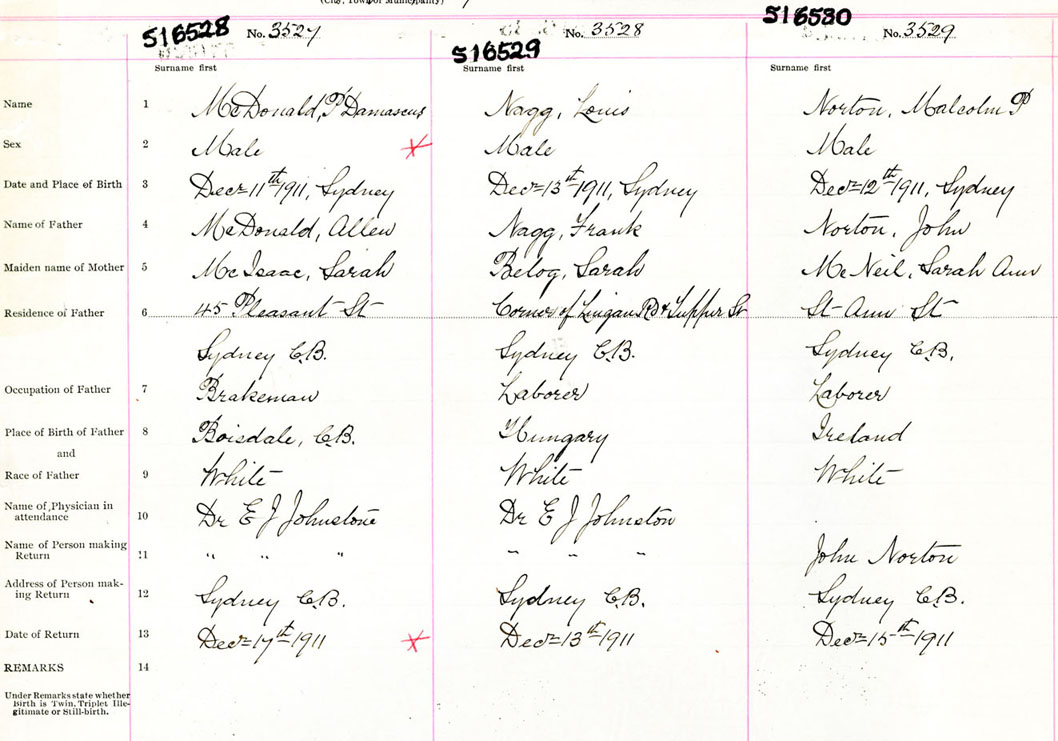 (City, Town or Municipality)
516528 No. 3527 516529 No. 3528 516530 No. 3529
Surname first Surname first Surname first
Name 1 McDonald, P Damascus Nagg, Louis Norton, Malcolm P
Sex 2 Male Male Male
Date and Place of Birth 3 Dec= 11th 1911, Sydney Dec= 13th 1911, Sydney Dec= 12th 1911, Sydney
Name of Father 4 McDonald, Allen Nagg, Frank Norton, John
Maiden name of Mother 5 McIsaac, Sarah Belog, Sarah McNeil, Sarah Ann
Residence of Father 6 45 Pleasant St Corner of Lingan Rd & Tupper St St Ann St
Sydney C.B. Sydney C.B. Sydney C.B.
Occupation of Father 7 Brakeman Laborer Laborer
Place of Birth of Father 8 Boisdale, C.B. Hungary Ireland
and
Race of Father 9 White White White
Name of Physician in
attendance 10 Dr E J Johnstone Dr E J Johnston
Name of Person making
Return 11 " " " " " " John Norton
Address of Person mak-
ing Return 12 Sydney C.B. Sydney C.B. Sydney C.B.
Date of Return 13 Dec= 17th 1911 Dec= 13th 1911 Dec= 15th 1911
REMARKS 14
Under Remarks state whether
Birth is Twin, Triplet Ille-
gitimate or Still-birth.